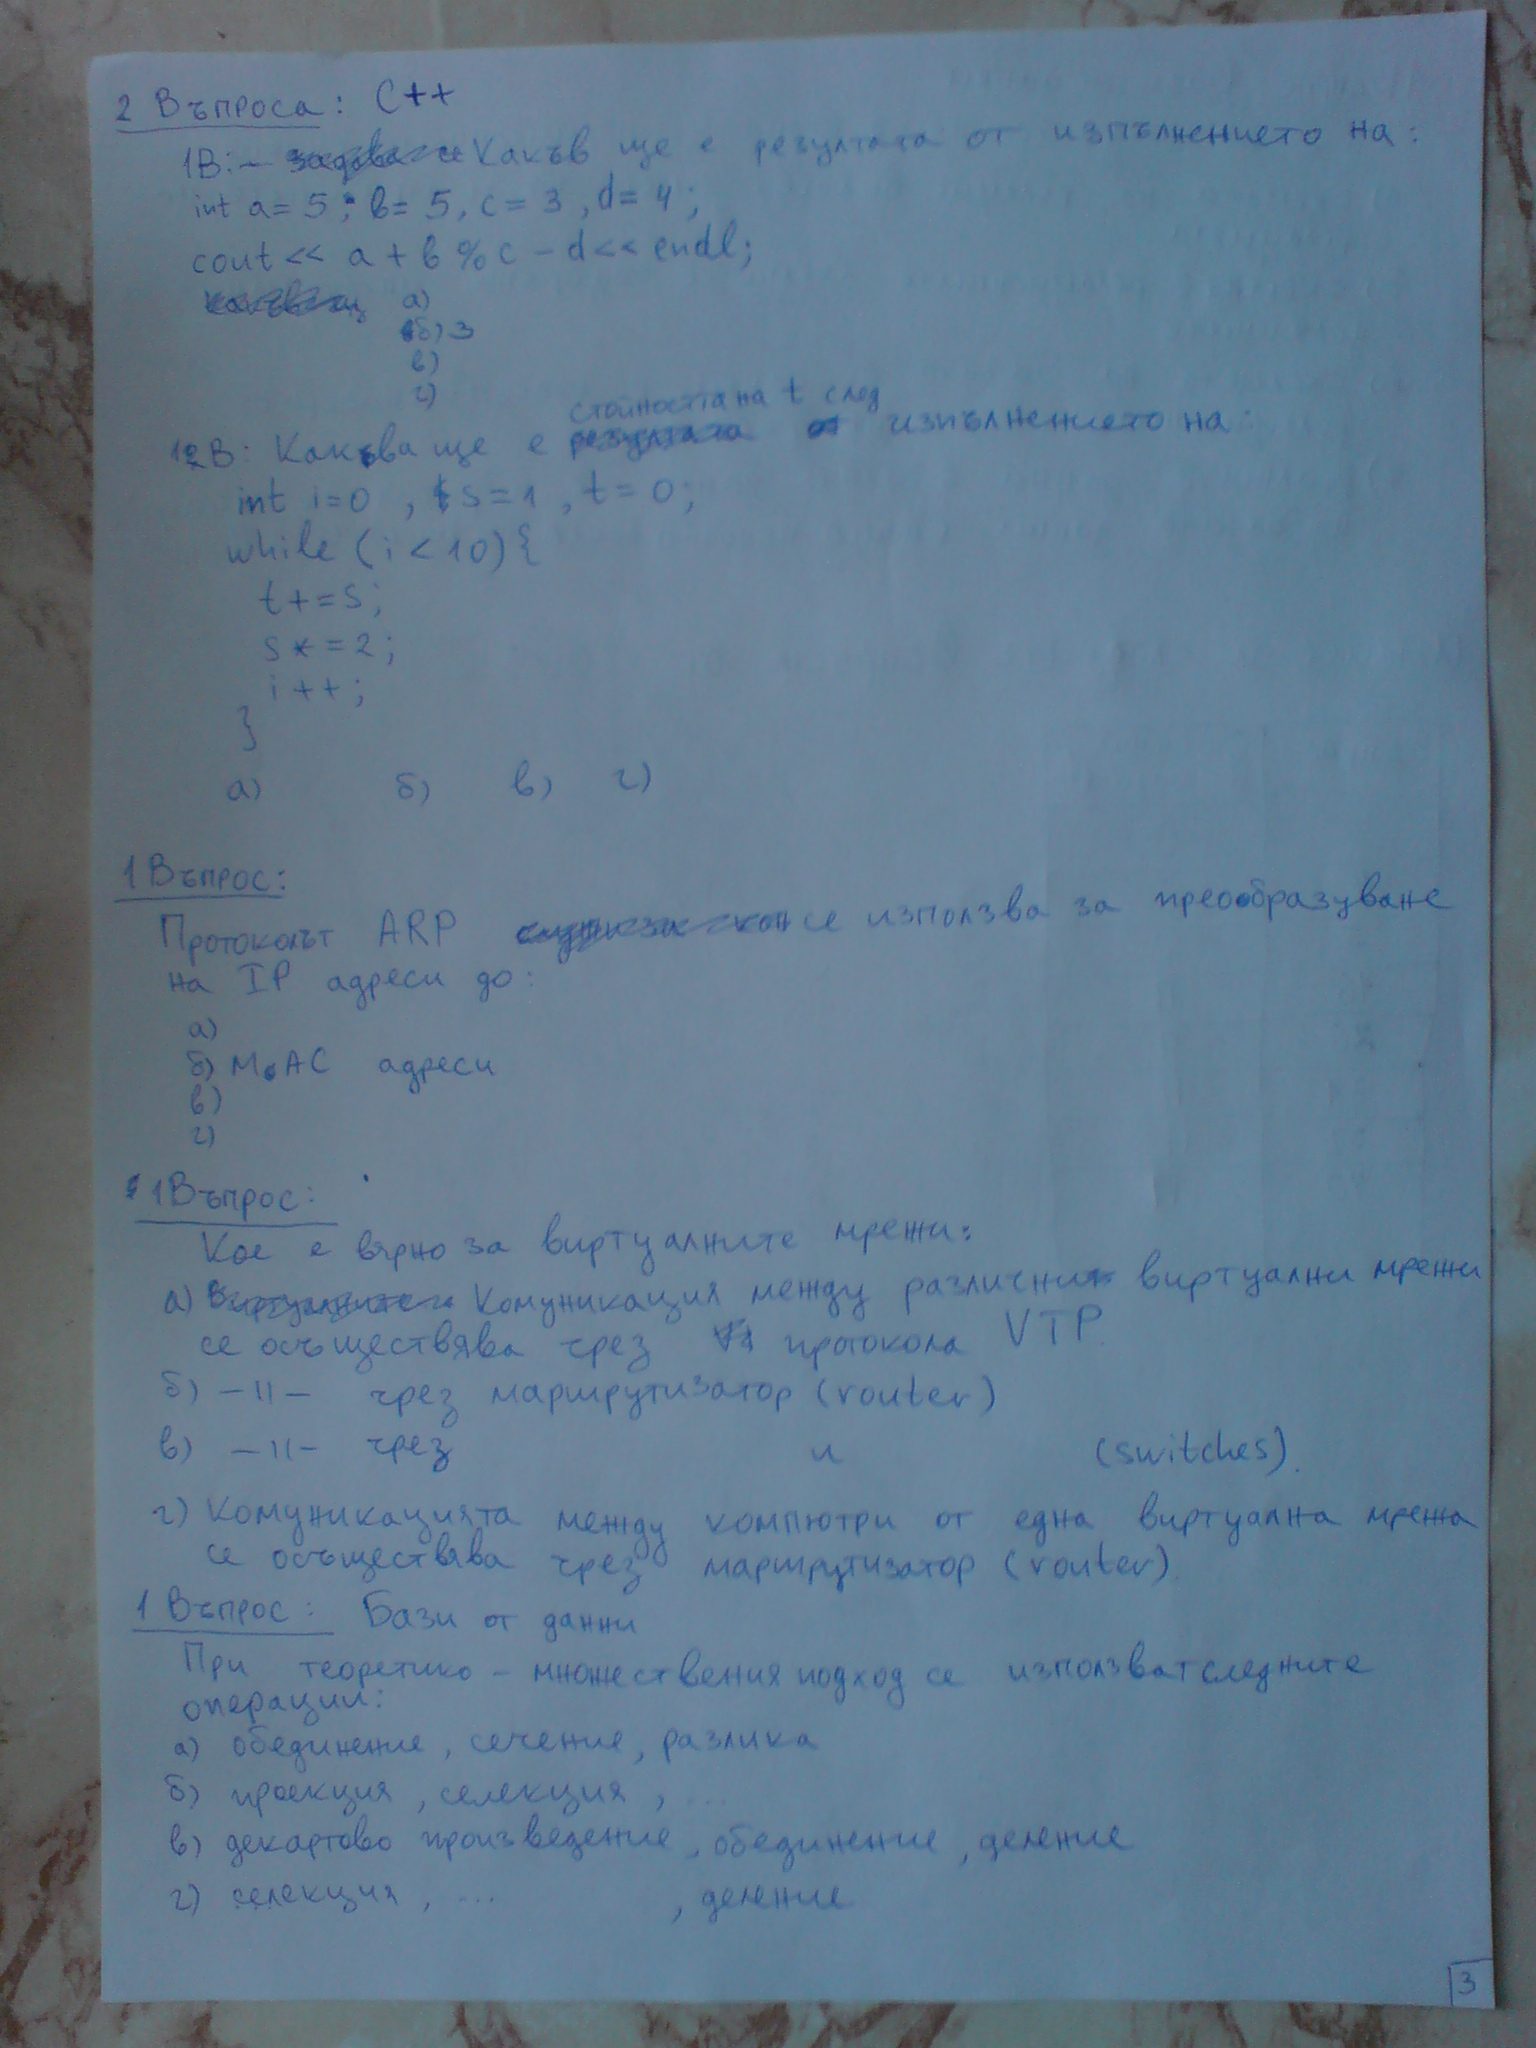 2 Въпроса: C++
1В: – Какъв ще е резултата от изпълнението на:
int a = 5; b = 5, c = 3, d = 4;
cout << a + b % c – d << endl;
а)
б) 3
в)
г)
стойността на t след
2В: Каква ще е изпълнението на:
int i = 0, s = 1, t = 0;
while (i < 10) {
t += s;
s *= 2;
i ++;
}
а) б) в) г)
1 Въпрос:
Протоколът ARP се използва за преобразуване
на IP адреси до:
а)
б) MAC адреси
в)
г)
1 Въпрос:
Кое е вярно за виртуалните мрежи:
а) Комуникация между различни виртуални мрежи
се осъществява чрез протокола VTP.
б) –||– чрез маршрутизатор (router)
в) –||– чрез и (switches).
г) Комуникацията между компютри от една виртуална мрежа
се осъществява чрез маршрутизатор (router).
1 Въпрос: Бази от данни
При теоретико – множествения подход се използват следните
операции:
а) обединение, сечение, разлика
б) проекция, селекция, ...
в) декартово произведение, обединение, деление
г) селекция, ... , деление
3